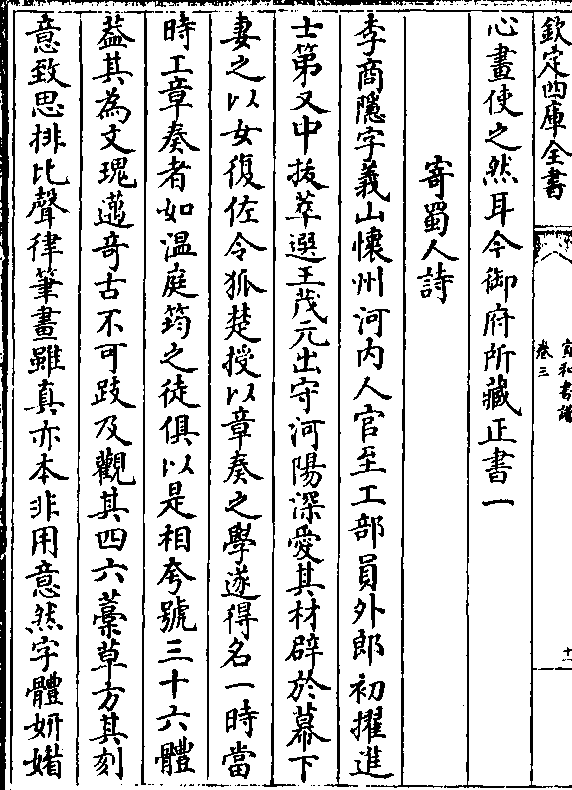 欽定四庫全書
宣和書譜
卷三
十一
心畫使之然耳今御府所藏正書一
寄蜀人詩
李商隱字義山懷州河内人官至工部員外郎初擢進
士第又中拔萃選王茂元出守河陽深愛其材辟於幕下
妻之以女復佐令狐楚授以章奏之學遂得名一時當
時工章奏者如温庭筠之徒俱以是相夸號三十六體
葢其為文瑰邁竒古不可跂及觀其四六藁草方其刻
意致思排比聲律筆畫雖真亦本非用意然字體妍媚